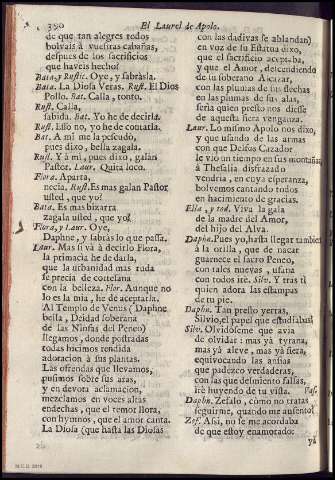 390
El Laurel de Apolo.
de que tan alegres todos
bolvais à vuestras cabañas,
despues de los sacrificios
que haveis hecho?
Bata, y Rustic. Oye, y sabràsla.
Bata. La Diosa Veras. Rust. El Dios
Pollo. Bat. Calla, tonto.
Rust. Calla,
sabida. Bat. Yo he de decirla.
Rust. Esso no, yo he de contarla.
Bat. A mi me la pescudò,
pues dixo, bella zagala.
Rust. Y à mi, pues dixo, galan
Pastor. Laur. Quita loco.
Flora. Aparta,
necia. Rust. Es mas galan Pastor
usted, que yo?
Bata. Es mas bizarra
zagala usted, que yo?
Flora, y Laur. Oye,
Daphne, y sabràs lo que passa.
Laur. Mas si và à decirlo Flora,
la primacia he de darla,
que la urbanidad mas ruda
se precia de cortesana
con la belleza. Flor. Aunque no
lo es la mia, he de aceptarla.
Al Templo de Venus (Daphne
bella, Deidad soberana
de las Ninfas del Peneo)
llegamos, donde postradas
todas hicimos rendida
adoracion à sus plantas.
Las ofrendas que llevamos,
pusimos sobre sus aras,
y en devota aclamacion,
mezclamos en voces altas
endechas, que el temor llora,
con hymnos, que el amor canta.
La Diosa (que hasta las Diosas
con las dadivas se ablandan)
en voz de su Estatua dixo,
que el sacrificio aceptaba,
y que el Amor, descendiendo
de su soberano Alcazar,
con las plumas de sus flechas
en las plumas de sus alas,
seria quien presto nos diesse
de aquesta fiera venganza.
Laur. Lo mismo Apolo nos dixo,
y que usando de las armas
con que Delfos Cazador
le viò un tiempo en sus montañas
à Thesalia disfrazado
vendria, en cuya esperanza,
bolvemos cantando todos
en hacimiento de gracias.
Ella, y tod. Viva la gala
de la madre del Amor,
del hijo del Alva.
Daph. Pues yo, hasta llegar tambien
à la orilla, que de nacar
guarnece el sacro Peneo,
con tales nuevas, usana
con todos irè. Silv. Y tras ti
quien adora las estampas
de tu pie.
Daph. Tan presto yerras,
Silvio, el papel que estudiabas?
Silv. Olvidòseme que avia
de olvidar: mas yà tyrana,
mas yà aleve, mas yà fiera,
equivocando las ansias
que padezco verdaderas,
con las que desmiento falsas,
irè huyendo de tu vista. Vas.
Daph. Zefalo, còmo no tratas
seguirme, quando me ausento?
Zef. Assi, no se me acordaba
de que estoy enamorado:
yà